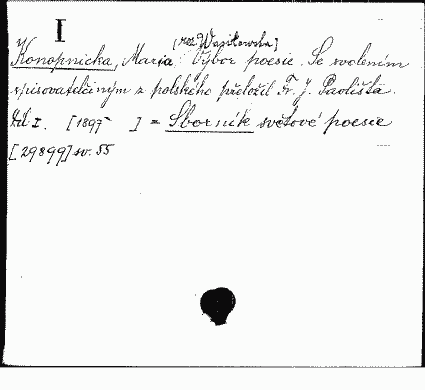 I
[roz. Wasiłowska]
Konopnicka, Maria: Výbor poesie. Se svolením
spisovatelčiným z polského přeložil Fr. J. Pavlišta.
Díl I. [1897- ] = Sborník světové poesie
[29899] sv. 55